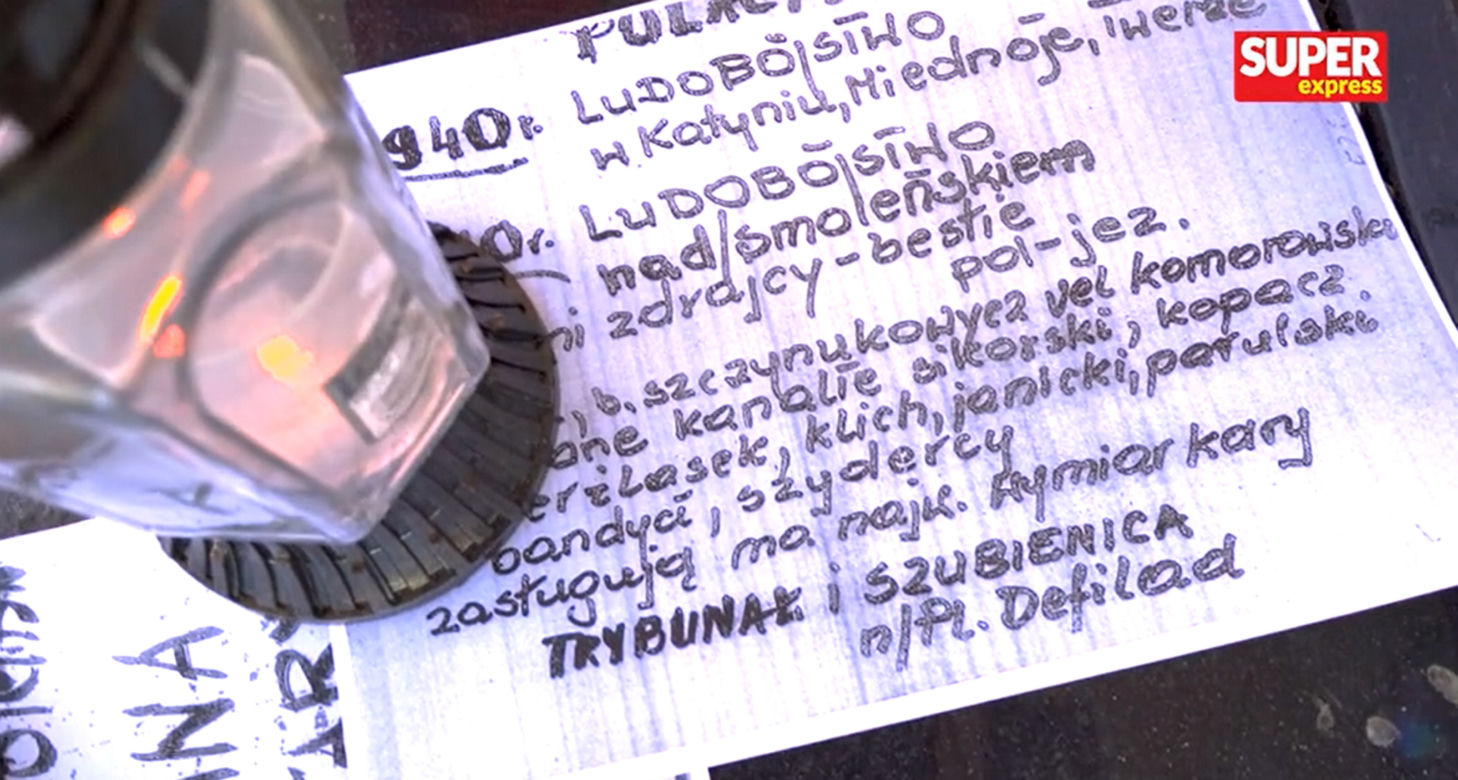 SUPER
express
940r. LUDOBÓJSTWO
w Katyniu, Miednoje, Twerze
0r. LUDOBÓJSTWO
nad/smoleńskiem
ni zdrajcy-bestie
pol-jez.
, b. szczynukowycz vel komorowski
ane kanalie sikorski, kopacz.
erz Lasek, klich, janicki, parulski
bandyci, szydercy
zasługują na najw. wymiar kary
TRYBUNAŁ i SZUBIENICA
n/Pl. Defilad
NA
AR